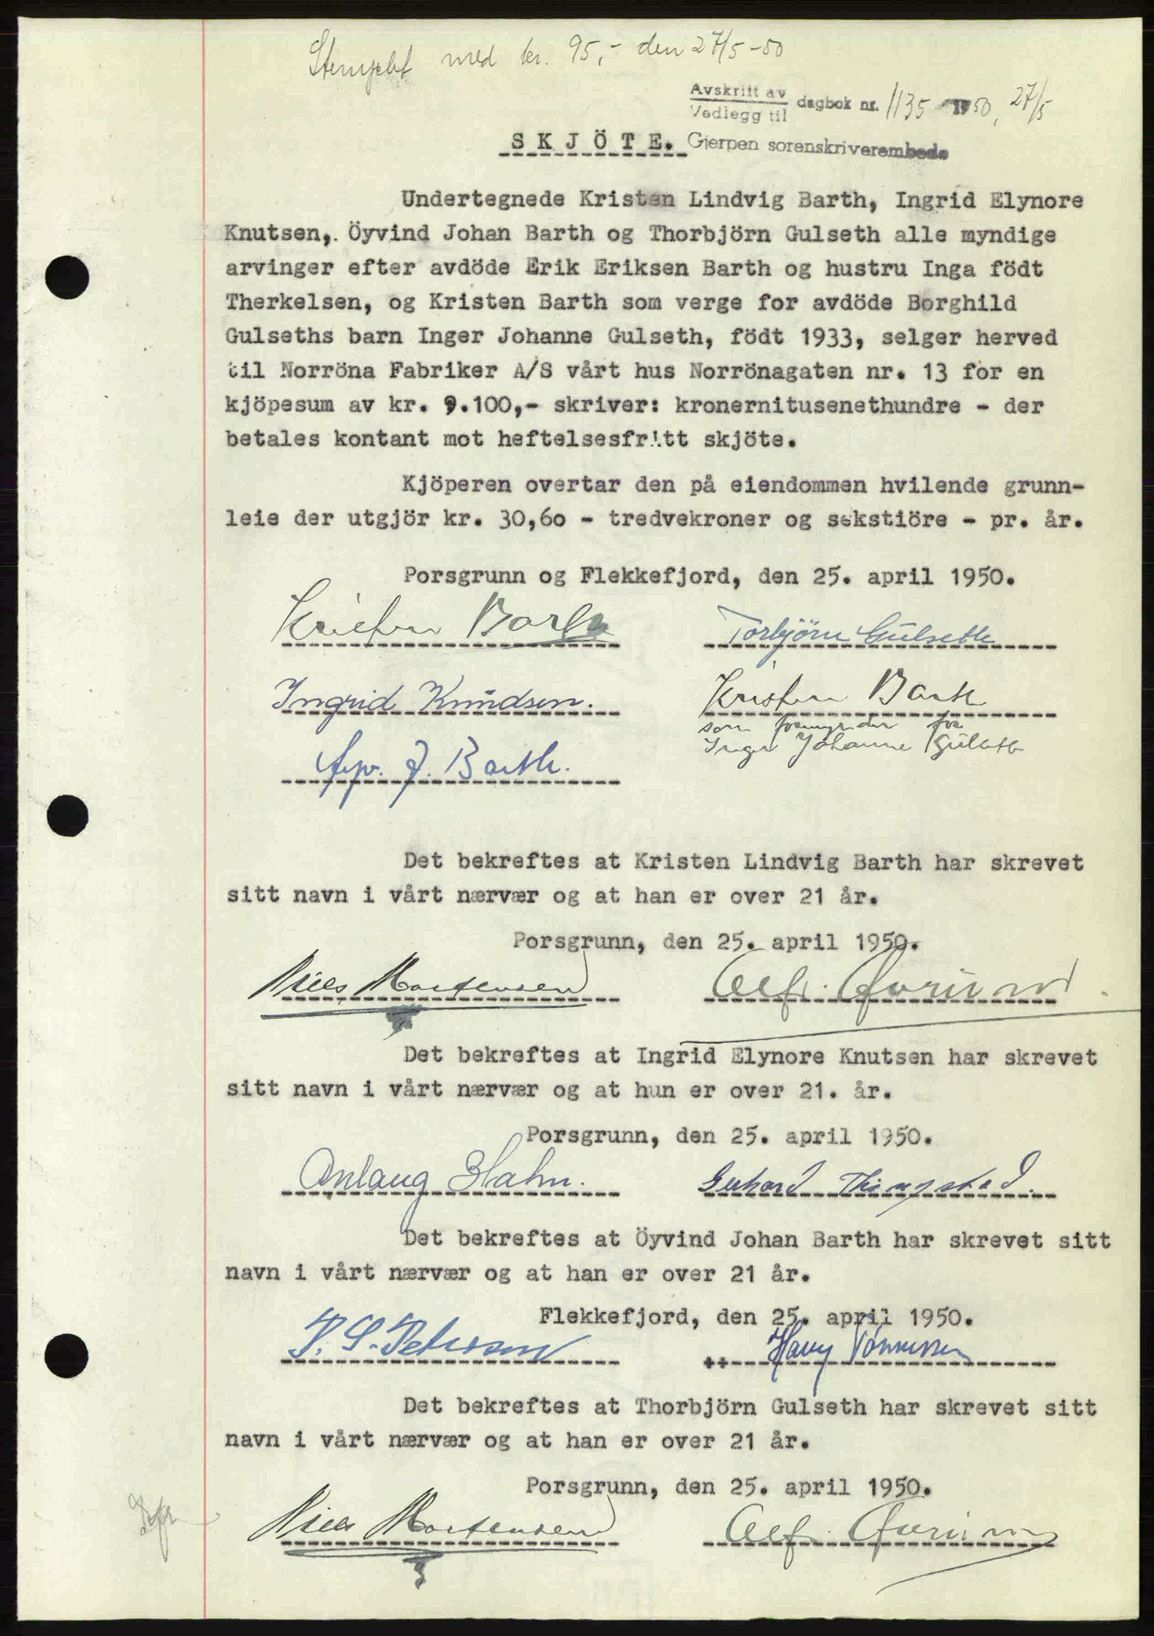 Stemplet med kr. 95,- den 27/5-50
Avskritt av
Vedlegg til dagbok nr. 1135 1950, 27/5
SKJÖTE. Gjerpen sorenskriverembede
Undertegnede Kristen Lindvig Barth, Ingrid Elynore
Knutsen,. Öyvind Johan Barth og Thorbjörn Gulseth alle myndige
arvinger efter avdöde Erik Eriksen Barth og hustru Inga födt
Therkelsen, og Kristen Barth som verge for avdöde Borghild
Gulseths barn Inger Johanne Gulseth, födt 1933, selger herved
til Norröna Fabriker A/S vårt hus Norrönagaten nr. 13 for en
kjöpesum av kr. 9.100,- skriver: kronernitusenethundre - der
betales kontant mot heftelsesfritt skjöte.
Kjöperen overtar den på eiendommen hvilende grunn-
leie der utgjör kr. 30,60 - tredvekroner og sekstiöre - pr. år.
Porsgrunn og Flekkefjord, den 25. april 1950.
Kristen Barth Torbjörn Gulseth
Ingrid Knudsen. Kristen Barth
som formynder for
Inger Johanne Gulseth
J. Barth.
Det bekreftes at Kristen Lindvig Barth har skrevet
sitt navn i vårt nærvær og at han er over 21 år.
Porsgrunn, den 25. april 1950.
Niels Mortensen Alf.
Det bekreftes at Ingrid Elynore Knutsen har skrevet
sitt navn i vårt nærvær og at hun er over 21. år.
Porsgrunn, den 25. april 1950.
Anlaug Hahn. Gerhard Thingstad.
Det bekreftes at Öyvind Johan Barth har skrevet sitt
navn i vårt nærvær og at han er over 21 år.
Flekkefjord, den 25. april 1950.
P. S. Petersen Harry Tönnessen
Det bekreftes at Thorbjörn Gulseth har skrevet sitt
navn i vårt nærvær og at han er over 21 år.
Porsgrunn, den 25. april 1950.
Niels Mortensen Alf.